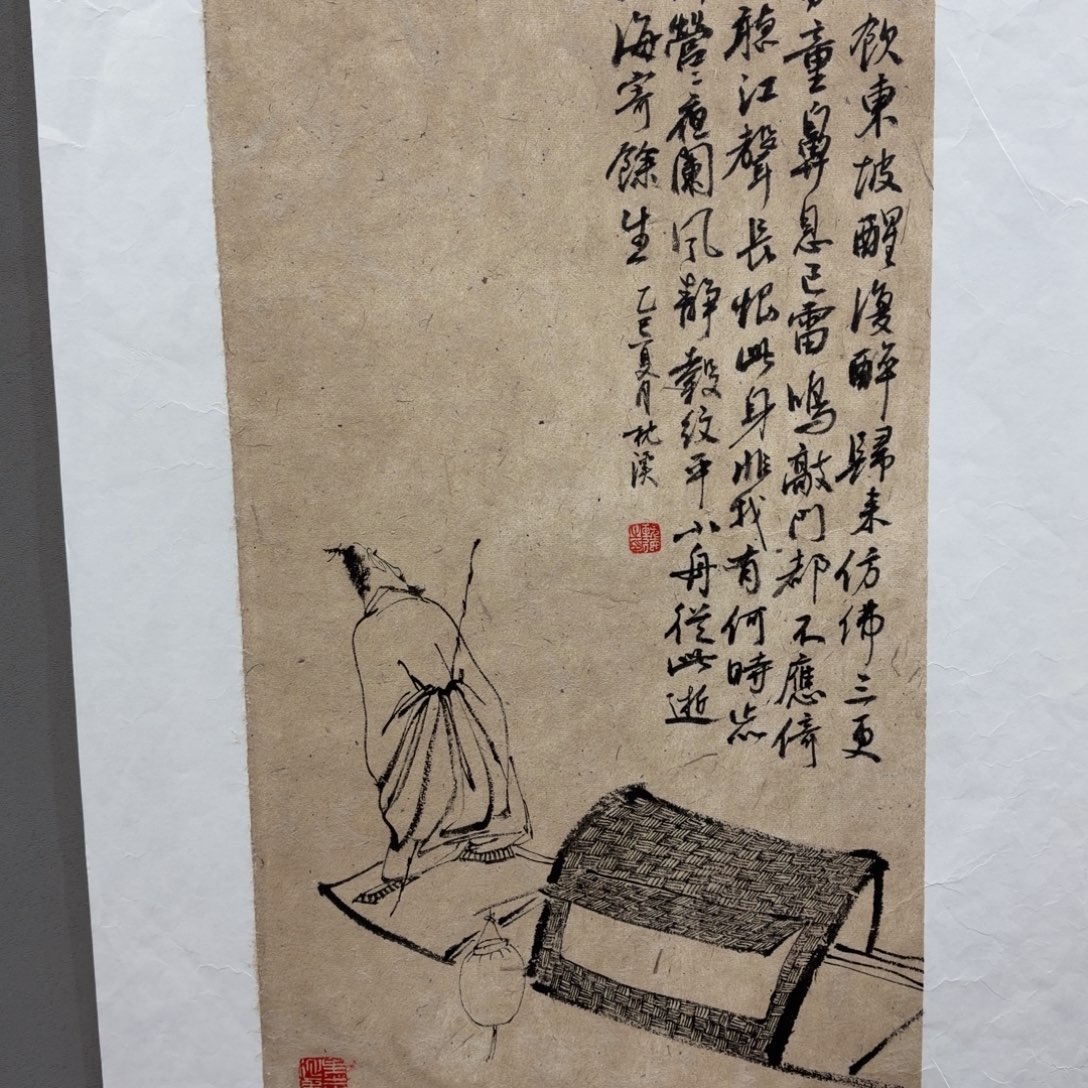 飲東坡醒復醉歸来仿佛三更
童鼻息已雷鳴敲門都不應倚
聽江聲長恨此身非我有何時忘
營〻夜闌風靜縠紋平小舟從此逝
海寄餘生
乙巳夏月枕溪